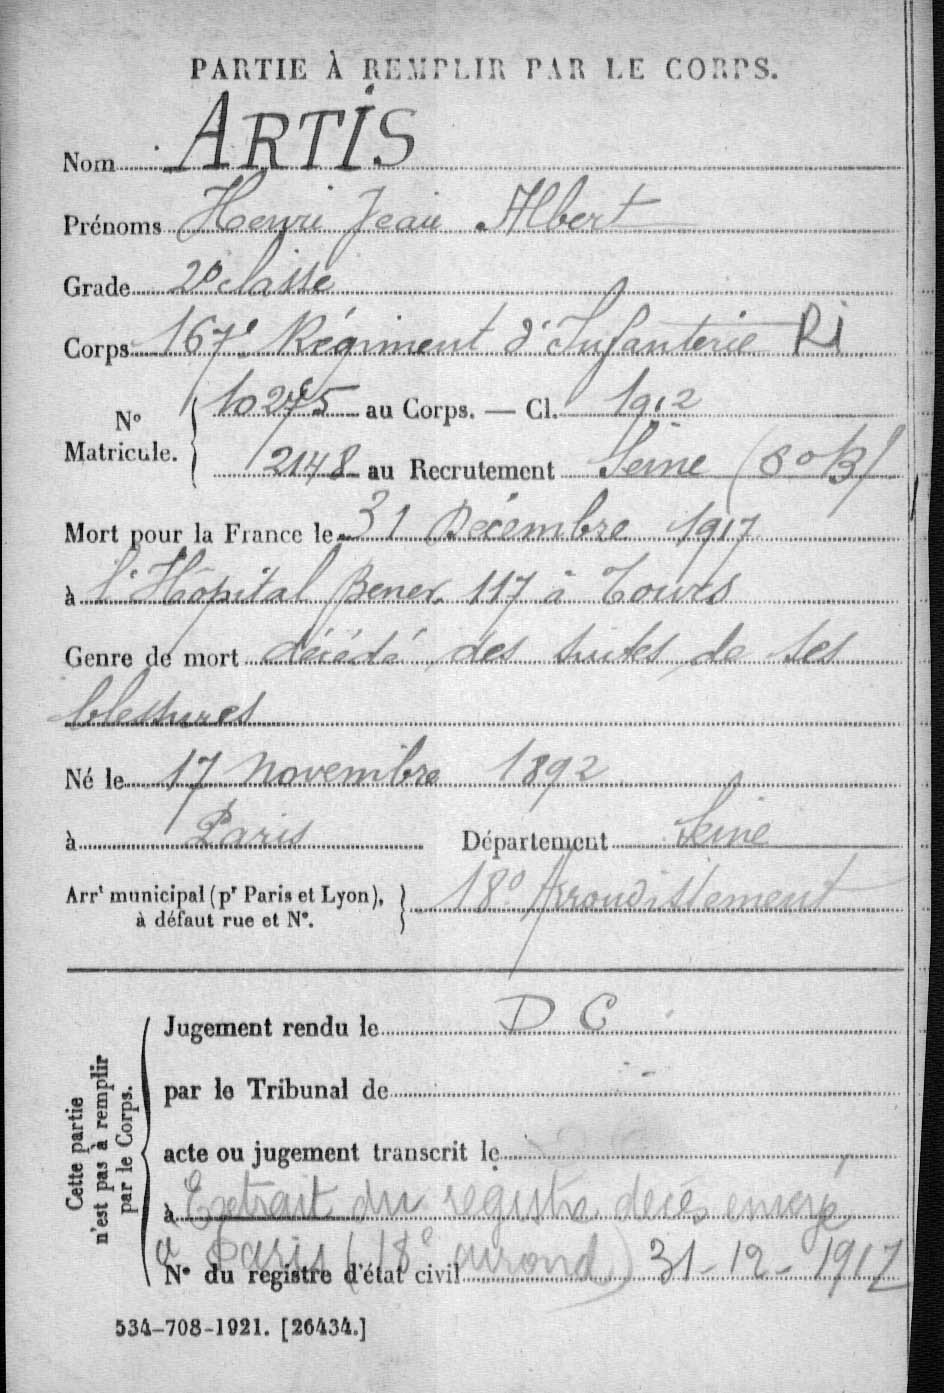 PARTIE À REMPLIR PAR LE CORPS.
Nom ARTIS
Prénoms Henri Jean Albert
Grade 2e classe
Corps 167e Régiment d'Infanterie RI
No Matricule. 10275 au Corps. — Cl. 1912
2148 au Recrutement Seine (8o B)
Mort pour la France le 31 Décembre 1917
à l'Hôpital Bener 117 à Tours
Genre de mort décédé des suites de ses
blessures
Né le 17 novembre 1892
à Paris Département Seine
Arrt municipal (pr Paris et Lyon), 18o Arrondissement
à défaut rue et No.
Cette partie
n'est pas à remplir
par le Corps.
Jugement rendu le D C
par le Tribunal de
acte ou jugement transcrit le
à Extrait du registre décès envoyé
à Paris (18e arrond) 31-12-1917
No du registre d'état civil
534-708-1921. [26434.]